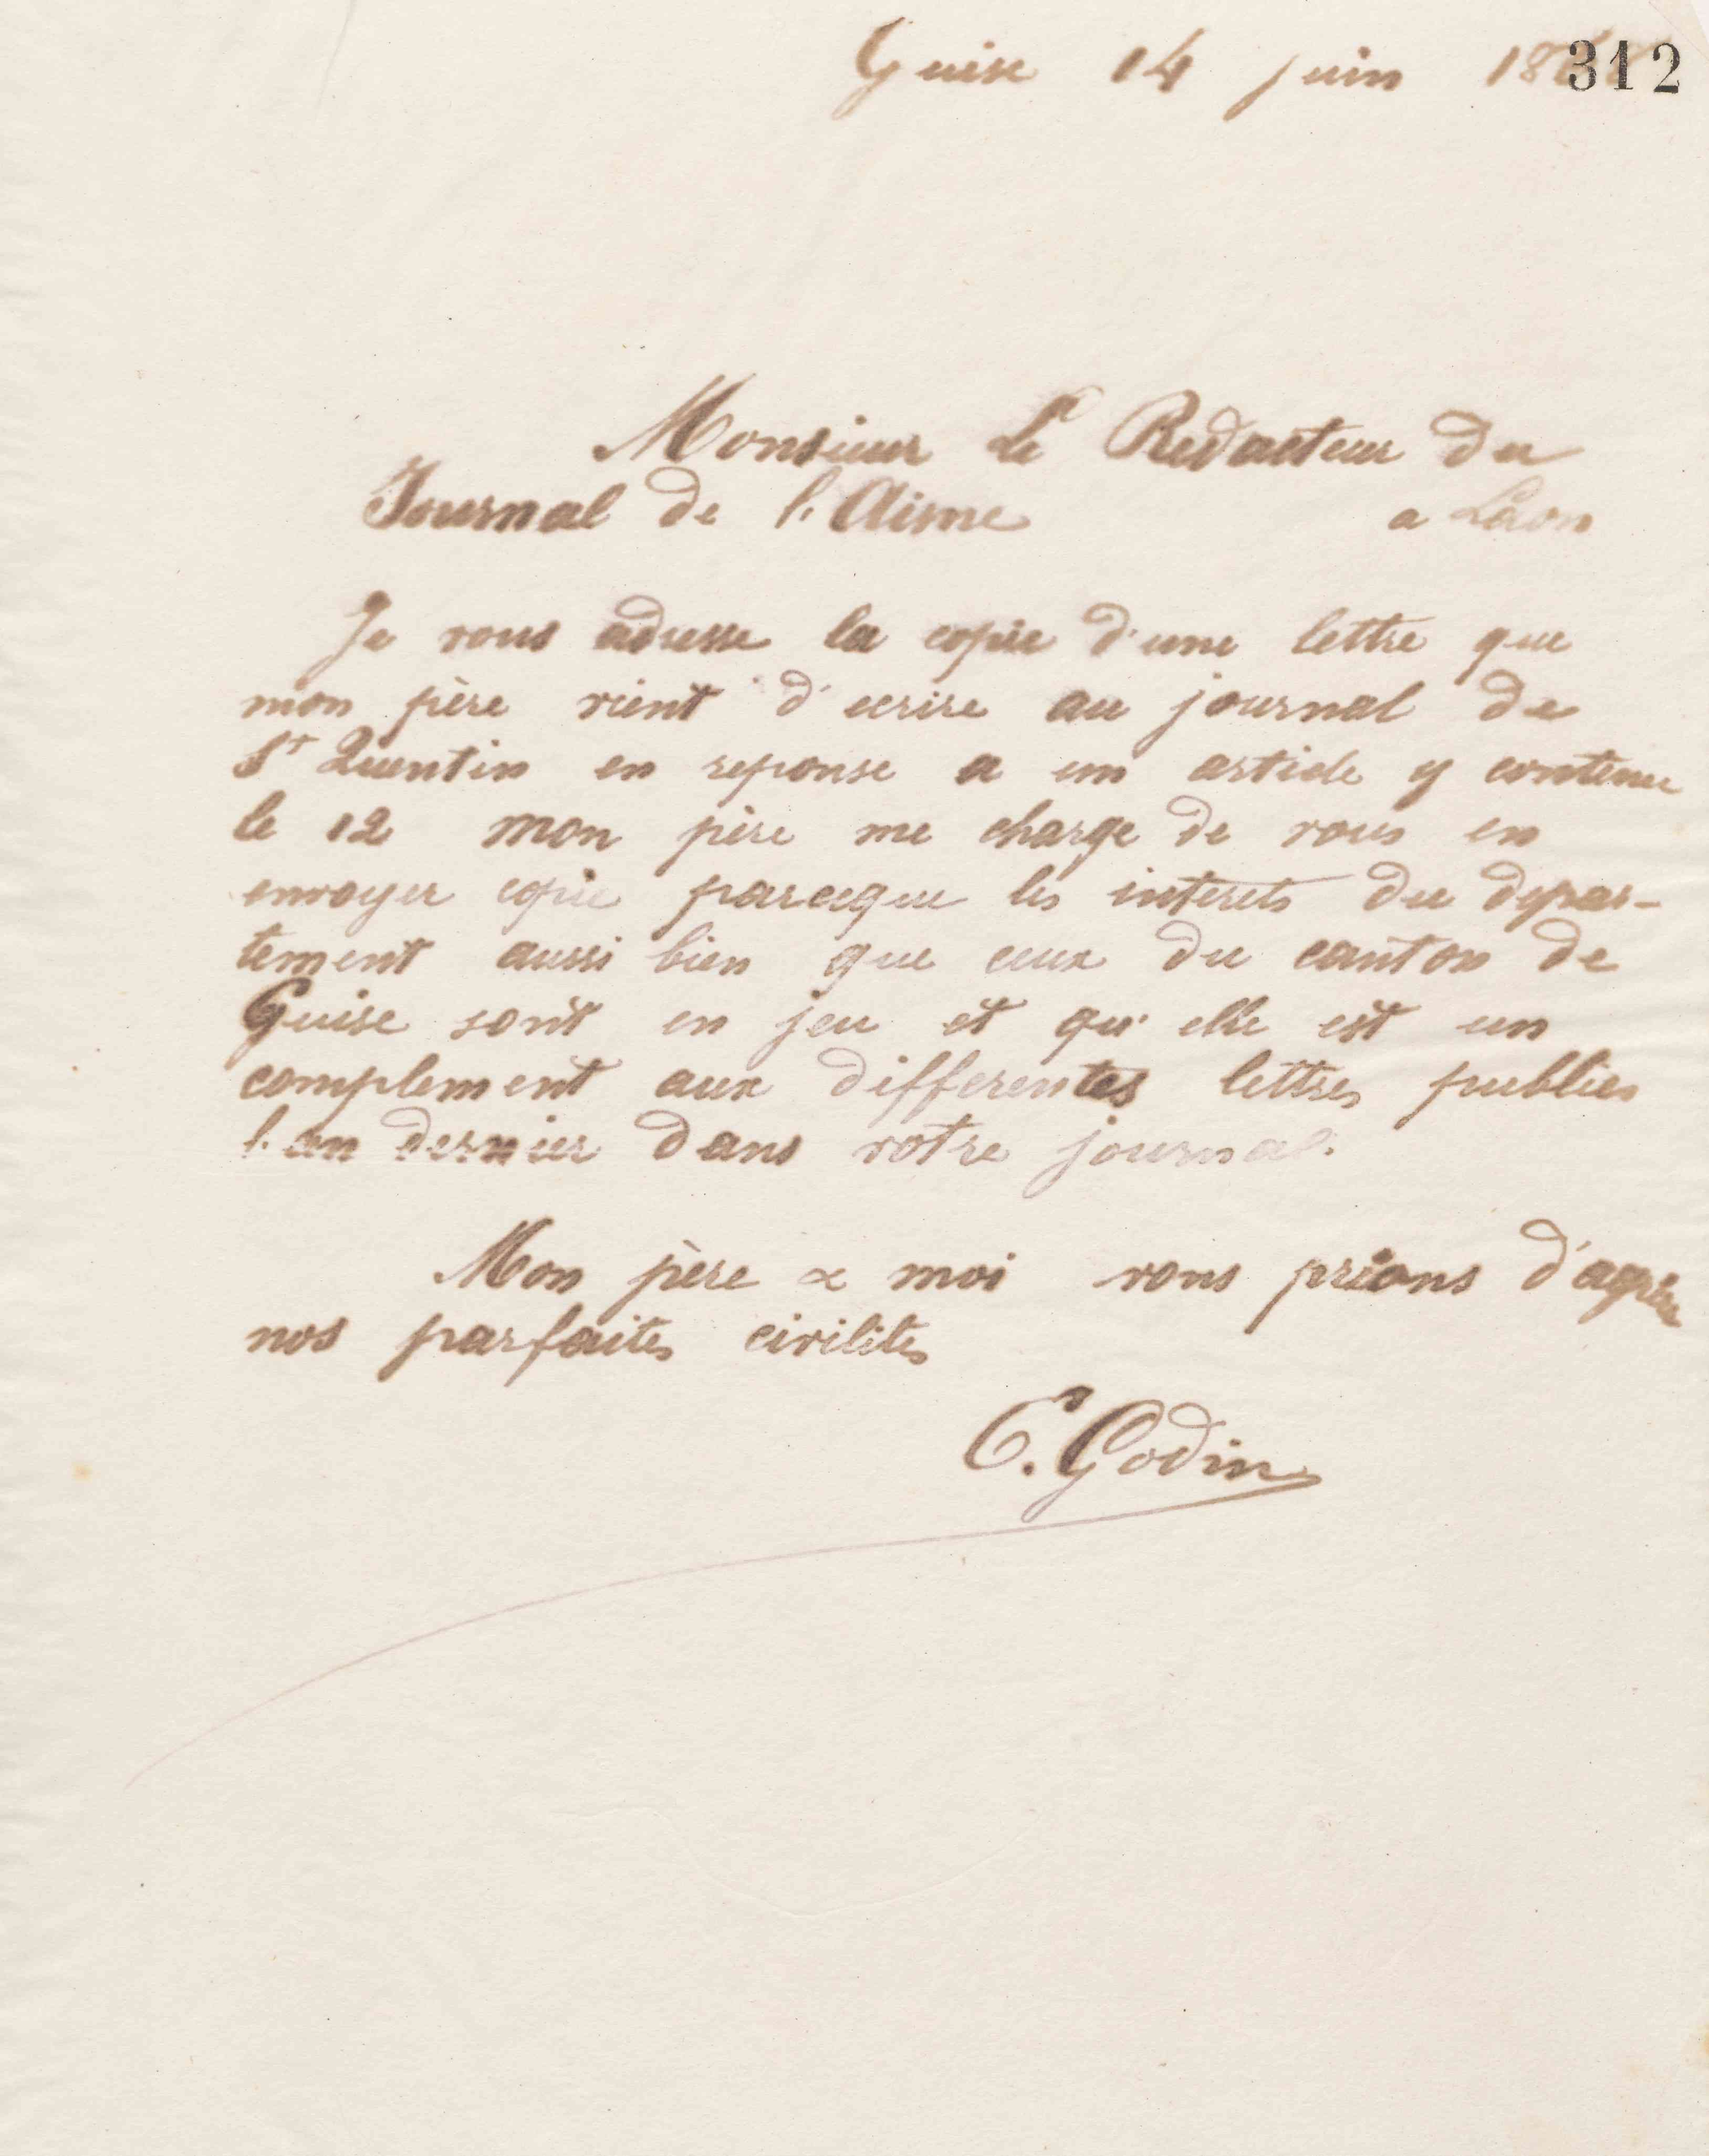 Guise 14 juin 18
312
Monsieur Le Redacteur du
Journal de l'Aisne a Laon
Je vous adresse la copie d'une lettre que
mon père vient d'ecrire au journal de
St Quentin en reponse a un article y contenu
le 12 mon père me charge de vous en
envoyer copie parceque les interets du depar-
tement aussi bien que ceux du canton de
Guise sont en jeu et qu'elle est un
complement aux differentes lettres publies
l'an dernier dans votre journal.
Mon père & moi vous prions d'agréer
nos parfaites civilites
E. Godin